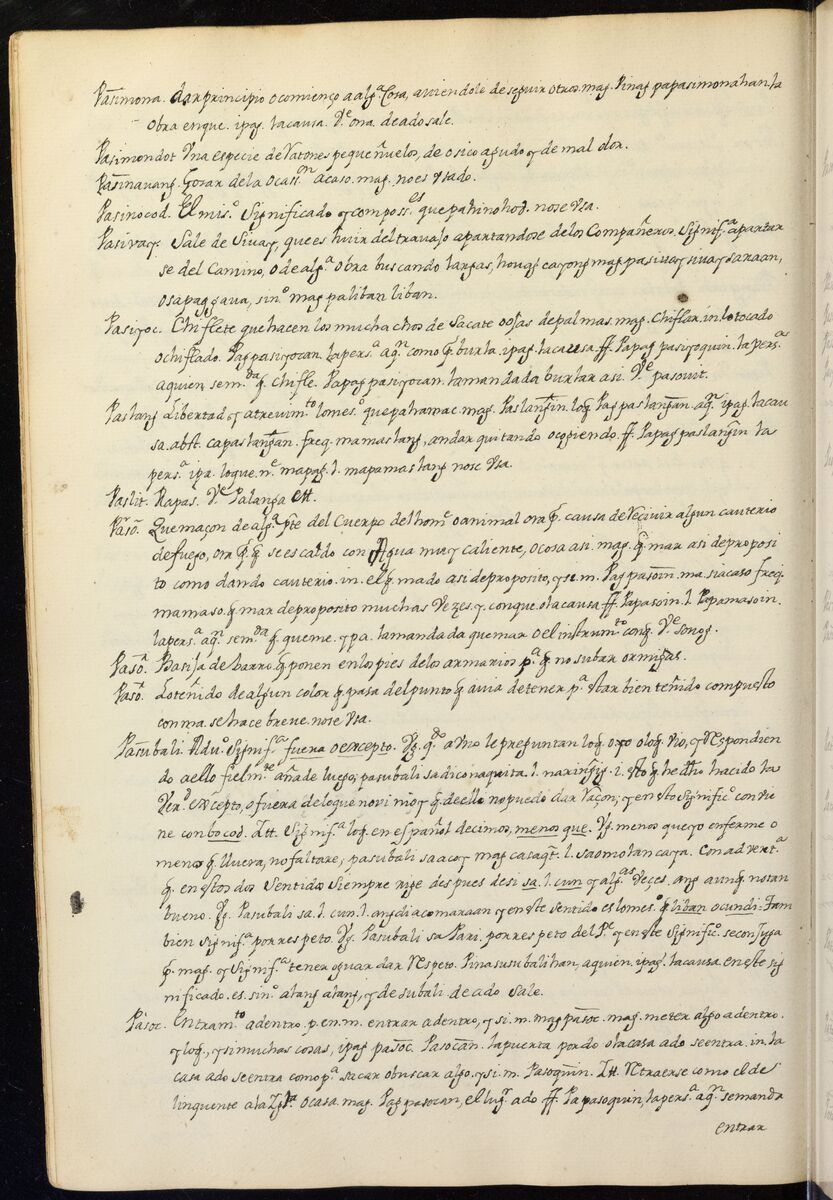 Pasimona. dar principio o comienço a alg.ª Cosa, aviendole de seguir otros. mag. Pinag papasimonahan. la
obra en que. ipag. la causa. V.e ona. de ado sale.
Pasimondot Una especie de Ratones pequeñuelos, de osico agudo y de mal olor.
Pasinavang. Gosar de la ocasi.on acaso. mag. no es usado.
Pasinocod. El mis.o Significado y composs.es que pahinohod. nose usa.
Pasivay. Sale de Sivay, que es huir del travajo apartandose de los Compañeros. Signif.ª apartar
se del Camino, o de alg.ª obra buscando largas, houag cayong mag pasivay sivay sa raan,
o sa pag gava, sin.o mag paliban liban.
Pasiyoc. Chiflete que hacen los muchachos de Sacate o ojas de palmas. mag. Chiflar. in. lo tocado
o chiflado. Pag pasiyocan. la pers.ª aq.n como q̃ burla. ipag. la causa. ff. Papag pasiyoquin. la pers.ª
a quien se m.da q̃ chifle. Papag pasiyocan. la mandada burlar asi. V.e pasouit.
Paslang Libertad y atrevim.to lo mes.o que pahamac. mag. Paslangin. loq̃ Pag paslangan. aq.n ipag. la cau
sa. abst. capaslangan. freq. mamaslang, andar quitando o cogiendo. ff. Papag paslangin la
pers.ª ipa. lo que. n.o mapag. l. mapamaslang nose usa.
Paslit. Rapas. V.e Palanga ett.
Paso. Quemaçon de alg.ª p.te del Cuerpo del hom.e o animal ora q̃ causa de recivir algun cauterio
de fuego, ora q̃ q̃ se escaldo con Agua muy caliente, o cosa asi. mag. q̃mar asi de proposi
to como dando cauterio. in. el q̃mado asi de proposito, y si. m. Pag pasoin. ma. si acaso freq.
mamaso. q̃mar de proposito muchas vezes. y con que. o la causa ff. Papasoin. l. Papamasoin.
la pers.ª aq.n se m.da q̃ queme. y pa. la mandada quemar o el instrum.to con q̃. V.e sonog.
Paso. Basija de barro. q̃ ponen en los pies de los armarios p.ª q̃ no suban ormigas.
Paso. Lo teñido de algun color q̃ pasa del punto q̃ avia de tener p.ª estar bien teñido compuesto
con ma. se hace breve. nose usa.
Pasubali. Adv.o Signif.ª fuera o excepto. Vg. q.do a uno le preguntan loq̃ oyo o loq̃ vio, y respondien
do a ello fielm.te añade luego; pasubali sa di co naquita. l. narinğig. i. esto q̃ he dho ha cido la
Ver.d excepto, o fuera de lo que no vi ni oy q̃ de ello no puedo dar raçon; y en esto signific.o convie
ne con bocod. Itt. Signif.ª loq̃ en español decimos, menos que. Vg. menos que yo enferme o
menos q̃ llueva, no faltare; pasubali sa acoy mag casaq.t l. sa omolan caya. Con advert.ª
q̃ en estos dos Sentidos Siempre rige despues de si sa. l. cun y alg.as veces. ang aunq̃ no tan
bueno. Vg. Pasubali sa. l. cun. l. ang di aco maraan y en este sentido es lo mes.o q̃ liban o cundi: Tam
bien signif.ª por respeto. Vg. Pasubali sa Pari. por respeto del P.e y en este signific.o se conjuga
q̃. mag. y signif.ª tener o guardar respeto. Pinasusubalihan, a quien, ipag. la causa. en este sig
nificado. es. sin.o alang alang, y de subali de ado sale.
Pasoc. Entram.to adentro. p. en. m. entrar adentro, y si. m. mag pasoc. mag. meter algo adentro.
y loq̃, y si muchas cosas, ipag pasoc. Pasocan. la puerta por do o la casa ado se entra. in. la
casa ado se entra como p.ª sacar o buscar algo. y si. m. Pasoquin. Itt. Retraerse como el de
linquente a la Igl.ª o casa. mag. Pag pasocan, el lug.r ado ff. Papasoquin, la pers.ª aq.n se manda
entrar